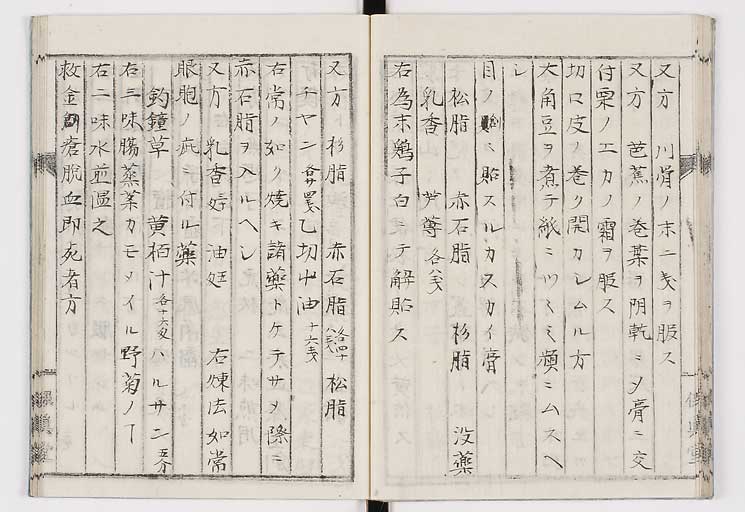 又方　川骨ノ末二戔ヲ服ス
又方　芭蕉ノ巻葉ヲ阴乾ニシテ膏ニ交
付栗ノエカノ霜ヲ服ス
切口皮ノ巻ク開カシムル方
大角豆ヲ煮テ紙ニツミ頻ニムスヘ
シ
目ノ　ニ貼スルカスカイ膏
松脂　赤石脂　杉脂　没藥
乳香　芦薈各八戔
右為末鶏子白ニテ解貼ス
又方　杉脂　赤石脂　松脂
チヤン　乙切中油十六戔
右常ノ如ク焼キ諸藥トケテサメ際ニ
赤石脂ヲ入ルヘシ
又方　乳香　油　右煉法如常
眼胞ノ疵ニ付ル藥
釣鐘草　黄栢汁各十六戔　ハルサン五分
右三味腸蒸葉カモメイル野菊ノ丁
右二味水煎温之
救金瘡脱血即死者方